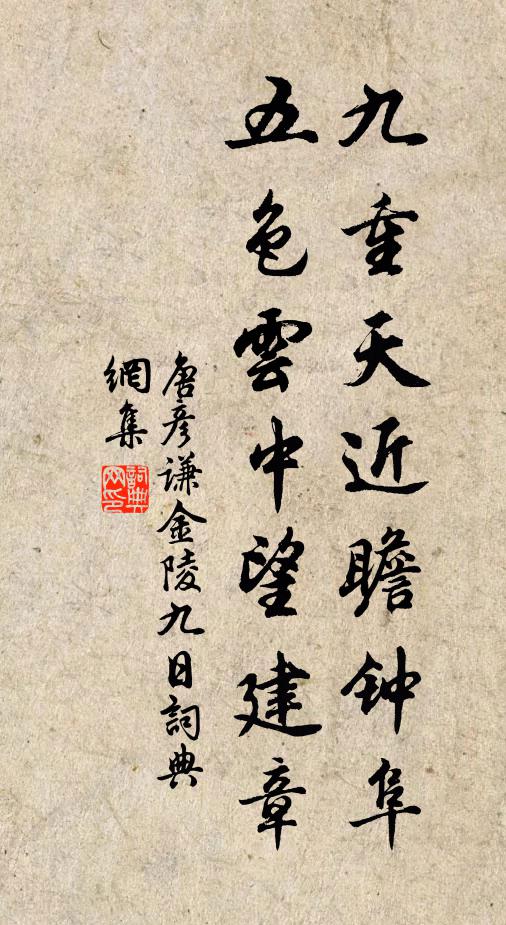 九重天近瞻钟阜
五色雲中望建章
唐彦謙金陵九日詞典
網集
詞典網印